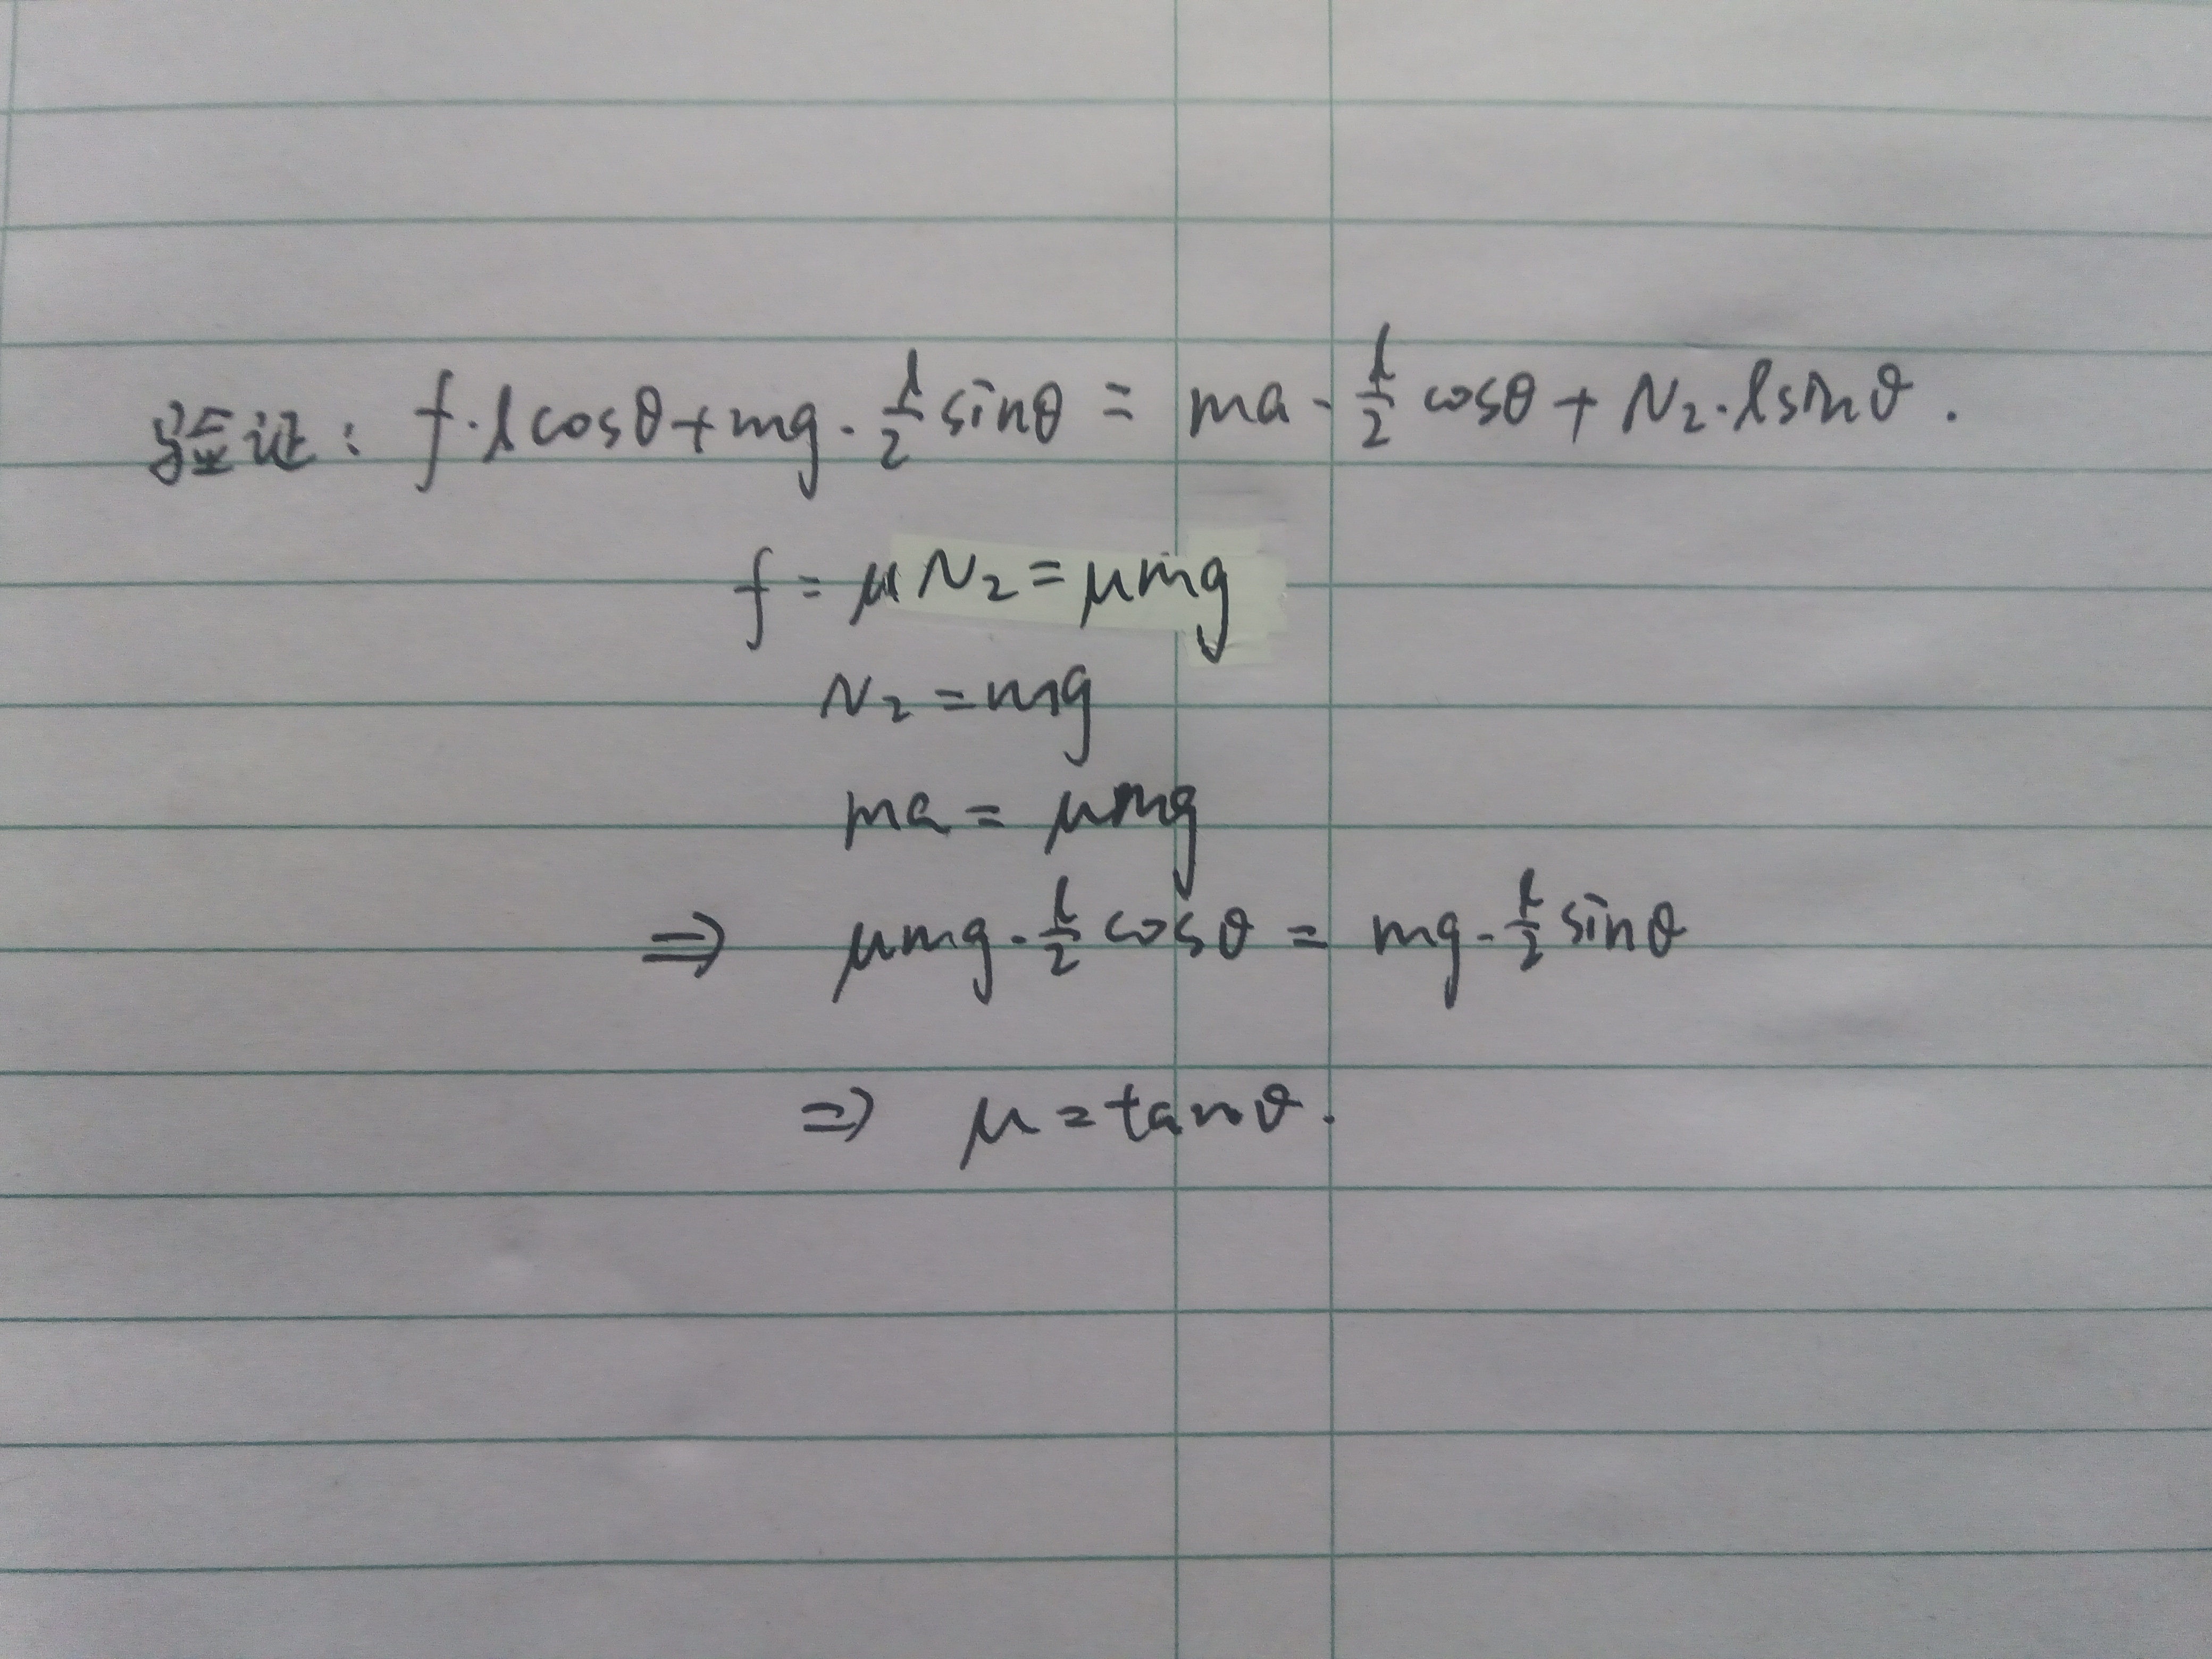 验证: f·lcosθ+mg·l/2 sinθ = ma·l/2 cosθ+N₂·lsinθ.
f=μN₂=μmg
N₂=mg
ma=μmg
⇒ μmg·l/2 cosθ = mg·l/2 sinθ
⇒ μ=tanθ.